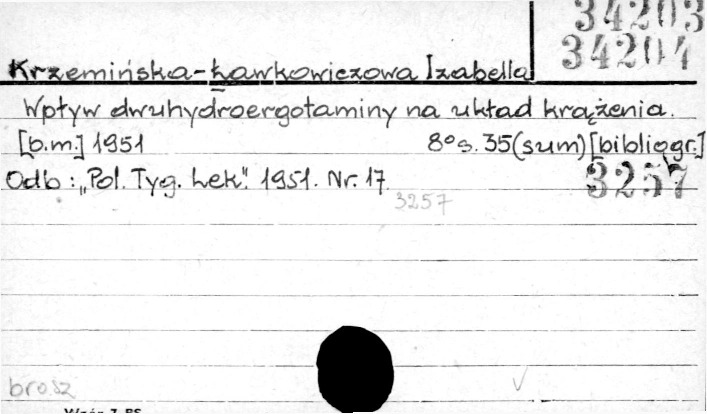 34203
34204
Krzemińska-Ławkowiczowa Izabella
Wpływ dwuhydroergotaminy na układ krążenia.
[b.m.] 1951 8° s. 35 (sum) [bibliogr.]
Odb: „Pol. Tyg. Lek". 1951. Nr. 17 3257
3257
brosz
Wzór 7 BS